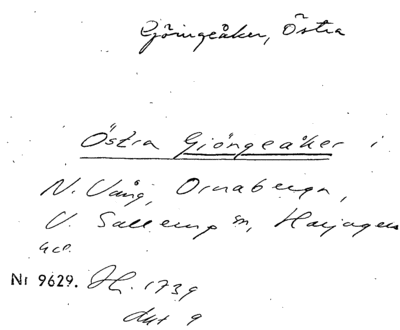 Göringeåker, Östra
Östra Gjöngeåker i
N. Vång, Ornaberga,
V. Sallerup sn, Harjagers
hd.
Nr 9629. H. 1739
akt 9